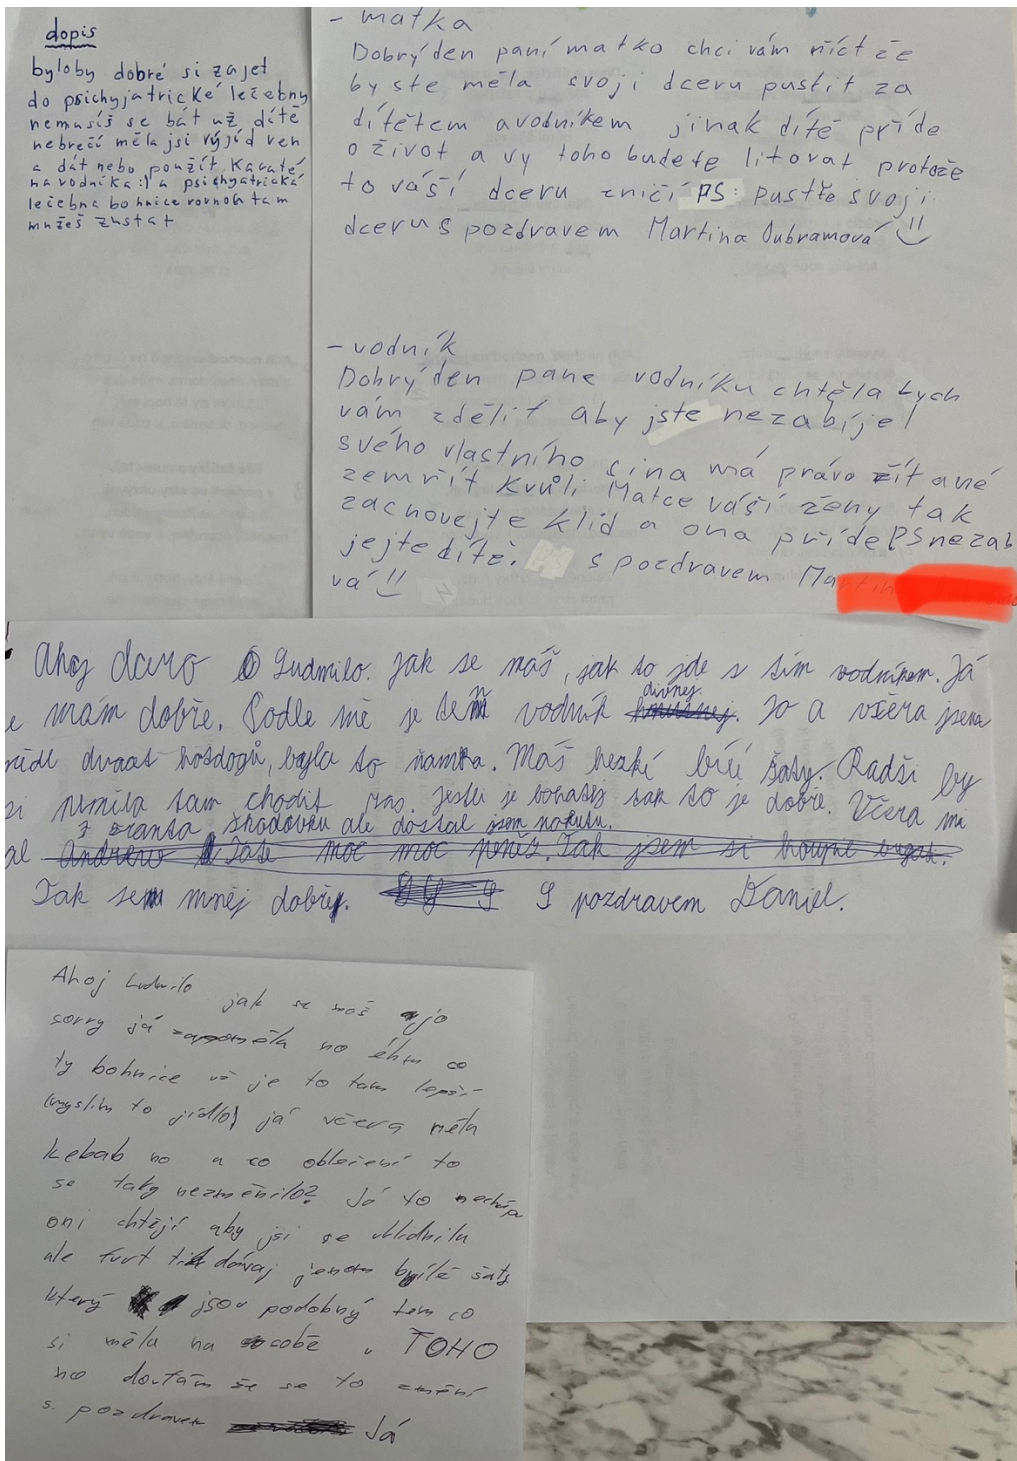 dopis
byloby dobré si zajet
do psichyjatrické ležebny
nemusíš se bát už dítě
nebrečí měla jsi výjíd ven
a dát nebo použít Karaté
na vodníka :) a psichyatrická
ležebna bohnice rovnou tam
mužeš zustat
- matka
Dobrý den paní matko chci vám říct že
by ste měla svoji dceru pustit za
dítětem a vodníkem jinak dítě príde
o život a vy toho budete litovat protože
to váší dceru zničí PS: pustťe svoji
dceru s pozdravem Martina Dubramová
- vodník
Dobrý den pane vodníku chtěla bych
vám zdělit aby jste nezabíjel
svého vlastního sina má právo žít a né
zemřít kvůli Matce váší ženy tak
zachovejte klid a ona príde PS nezab
jejte dítě. s pozdravem Martin
vá
Ahoj dcero Ludmilo. Jak se máš, jak to jde s tím vodníkem. Já
e mám dobře. Podle mě je ten vodník divnej. Jo a včera jsem
nědl dvacet hotdogů, byla to namka. Máš hezké bílé šaty. Radši by
si neměla tam chodit zas. Jestli je bohatej tak to je dobře. Včera mi
z granta škodovku ale dostal jsem pokutu.
al
Tak se měj dobře. S pozdravem Daniel.
Ahoj Ludmilo jak se máš jo
sorry já zapoměla no éhm co
ty bohnice už je to tam lepší
(myslím to jídlo) já včera měla
kebab no a co oblečení to
se taky nezměnilo? Já to nechápu
oni chtějí aby jsi se uklidnila
ale furt ti dávaj jenom bylé šaty
který jsou podobný tem co
si měla na sobě u TOHO
no doufám že se to změní
s pozdravem Já